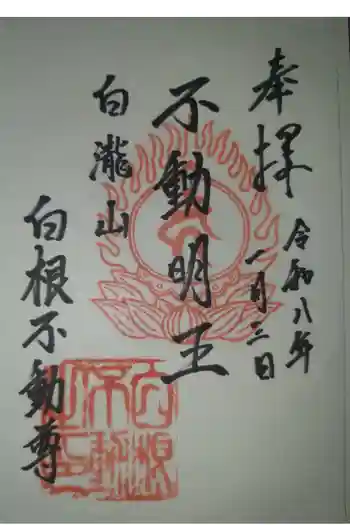 奉拝
令和八年
一月二日
不動明王
白瀧山
白根不動尊